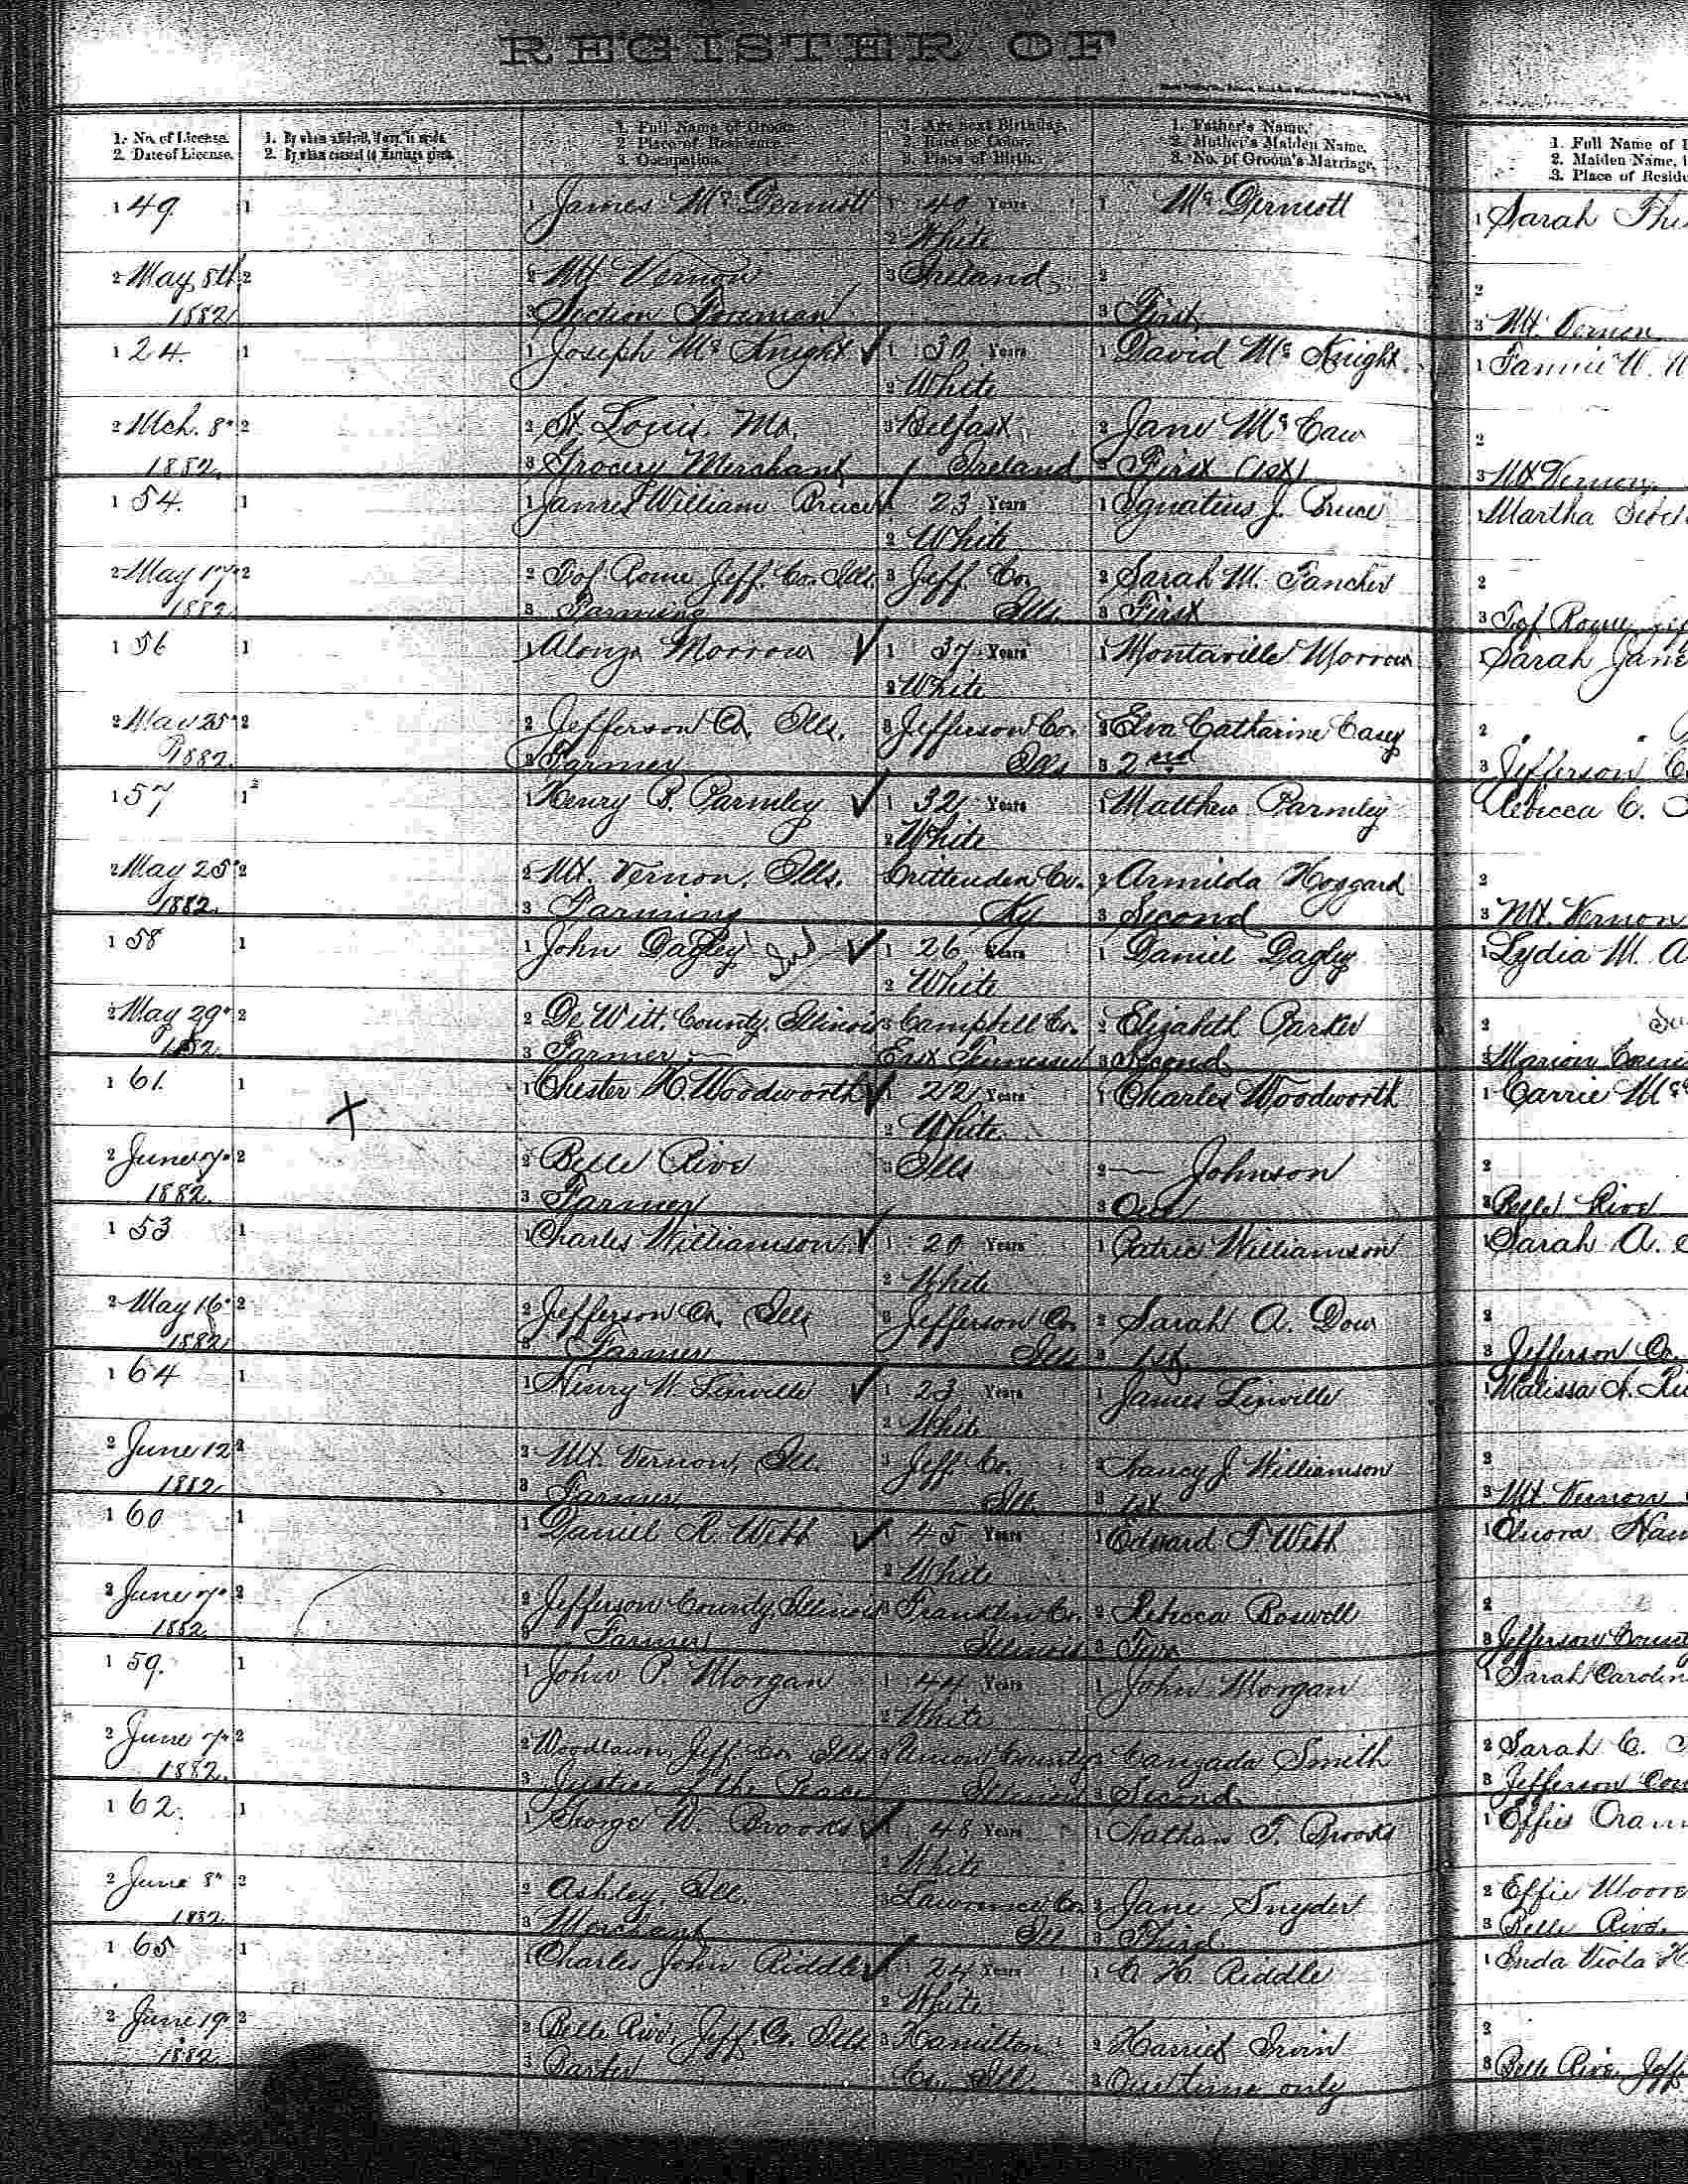 REGISTER OF
1. No. of License. 1. By whom affidavit, if any, is made. 1. Full Name of Groom. 1. Age next Birthday. 1. Father's Name. 1. Full Name of
2. Date of License. 2. By whom consent to Marriage given. 2. Place of Residence. 2. Race or Color. 2. Mother's Maiden Name. 2. Maiden Name,
3. Occupation. 3. Place of Birth. 3. No. of Groom's Marriage. 3. Place of Resid
1 49. 1 1 James Mc Dermott 1 40 Years 1 Mc Dermott 1 Sarah
2 White
2 May 8th 2 2 Mt Vernon 3 Ireland 2 2
1882 3 Section Foreman 3 First 3 Mt. Vernon
1 24. 1 1 Joseph Mc Knight 1 30 Years 1 David Mc Knight. 1 Fannie W.
2 White
2 Mch. 8" 2 2 St Louis, Mo. 3 Belfast 2 Jane Mc Caw 2
1882. 3 Grocery Merchant Ireland 3 First (1st) 3 Mt Vernon
1 54. 1 1 James William Bruce 1 23 Years 1 Ignatius J. Bruce 1 Martha
2 White
2 May 17" 2 2 T of Rome Jeff. Co. Ills. 3 Jeff. Co. 2 Sarah M. Fancher 2
1882 3 Farming Ills. 3 First 3 T of Rome
1 56 1 1 Alonzo Morrow 1 37 Years 1 Montaville Morrow 1 Sarah Jane
2 White
2 May 25" 2 2 Jefferson Co. Ills. 3 Jefferson Co. 2 Eva Catharine Casey 2
1882. 3 Farmer Ills 3 2nd 3 Jefferson C
1 57 1 1 Henry P. Parmley 1 32 Years 1 Matthew Parmley Rebecca C.
2 White
2 May 25" 2 2 Mt. Vernon, Ills. Crittenden Co. 2 Armilda Hoggard 2
1882. 3 Farming Ky 3 Second 3 Mt. Vernon
1 58 1 1 John Dagley 1 26 Years 1 Daniel Dagley 1 Lydia M. A
2 White
2 May 29" 2 2 De Witt County, Illinois 3 Campbell Co. 2 Elizabeth Parker 2
1882 3 Farmer East Tennessee 3 Second 3 Marion
1 61. 1 1 Chester H. Woodworth 1 22 Years 1 Charles Woodworth 1 Carrie Mc
X
2 White.
2 June 7" 2 2 Belle Rive 3 Ills 2 — Johnson 2
1882. 3 Farmer 3 One 3 Belle Rive
1 53 1 1 Charles Williamson 1 20 Years 1 Patric Williamson 1 Sarah A.
2 White
2 May 16" 2 2 Jefferson Co. Ills 3 Jefferson Co. 2 Sarah A. Dow 2
1882 3 Farmer Ills 3 1st. 3 Jefferson Co.
1 64 1 1 Henry W. Linville 1 23 Years 1 James Linville 1 Malissa A.
2 White
2 June 12 2 2 Mt. Vernon, Ill. 3 Jeff. Co. 2 Nancy J. Williamson 2
1882 3 Farmer Ill. 3 1st 3 Mt. Vernon
1 60 1 1 Daniel R. Webb 1 45 Years 1 Edward T. Webb 1
2 White
2 June 7" 2 2 Jefferson County, Illinois 3 Franklin Co. 2 Rebecca Boswell 2
1882 3 Farmer Illinois 3 Two 3 Jefferson Count
1 59. 1 1 John P. Morgan 1 44 Years 1 John Morgan 1 Sarah Carolin
2 White
2 June 7" 2 2 Woodlawn, Jeff. Co. Ills 3 Union County 2 Smith 2 Sarah C.
1882. 3 Justice of the Peace Illinois 3 Second 3 Jefferson Cou
1 62. 1 1 George W. Brooks 1 48 Years 1 Nathan T. Brooks 1 Effie
2 White
2 June 8" 2 2 Ashley, Ill. 3 Lawrence Co. 2 Jane Snyder 2 Effie Moore
1882 3 Merchant Ill 3 Third 3 Belle Rive.
1 65 1 1 Charles John Riddle 1 24 Years 1 C. H. Riddle 1 Viola
2 White
2 June 19" 2 2 Belle Rive, Jeff. Co. Ills 3 Hamilton 2 Harriet Irvin 2
1882 3 Co. Ill. 3 One time only 3 Belle Rive, Jeff